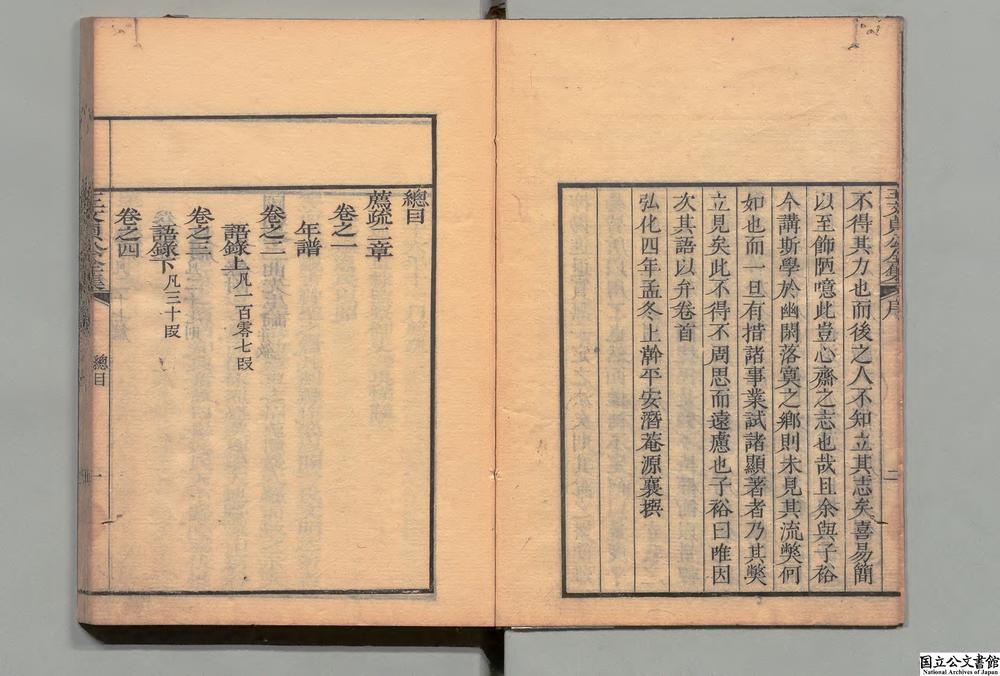 不得其力也而後之人不知立其志矣喜易簡
以至飾陋噫此豈心齋之志也哉且余與子裕
今講斯學於幽閑落寞之鄉則未見其流獘何
如也而一旦有措諸事業試諸顯著者乃其獘
立見矣此不得不周思而遠慮也子裕曰唯因
次其語以弁卷首
弘化四年孟冬上澣平安潛菴源襄撰
總目
薦疏二章
卷之一
年譜
卷之二
語錄上凡一百零七段
卷之三
語錄下凡三十段
卷之四
總目
一
国立公文書館
National Archives of Japan